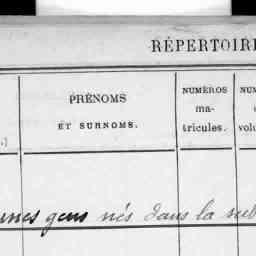 RÉPERTOIRE
PRÉNOMS
ET SURNOMS.
NUMÉROS
ma-
tricules.
gens nés dans la